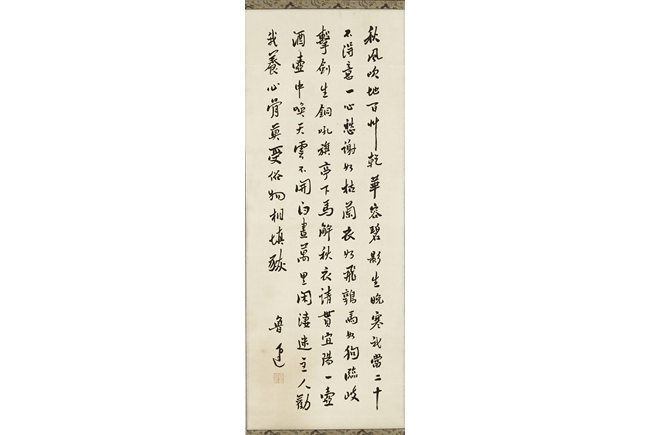 秋風吹地百艸乾華容碧影生晚寒我當二十
不得意一心愁謝如枯蘭衣如飛鶉馬如狗臨歧
擊劍生銅吼旗亭下馬解秋衣請貰宜陽一壺
酒壺中喚天雲不開白晝萬里閑凄迷主人勸
我養心骨莫受俗物相填豗
魯迅